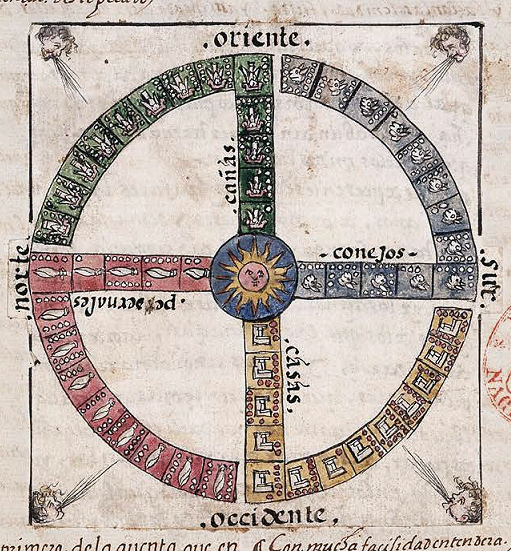 .oriente.
.cañas.
-conejos-
norte
sur.
pedernales
.casas.
.occidente.
primera dela quenta que en
Con mucha facilidad entendera.